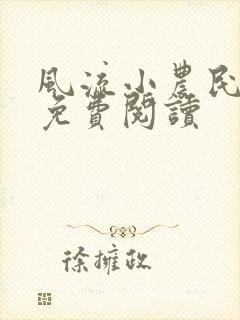 風流小農民
免費閱讀
徐擁政